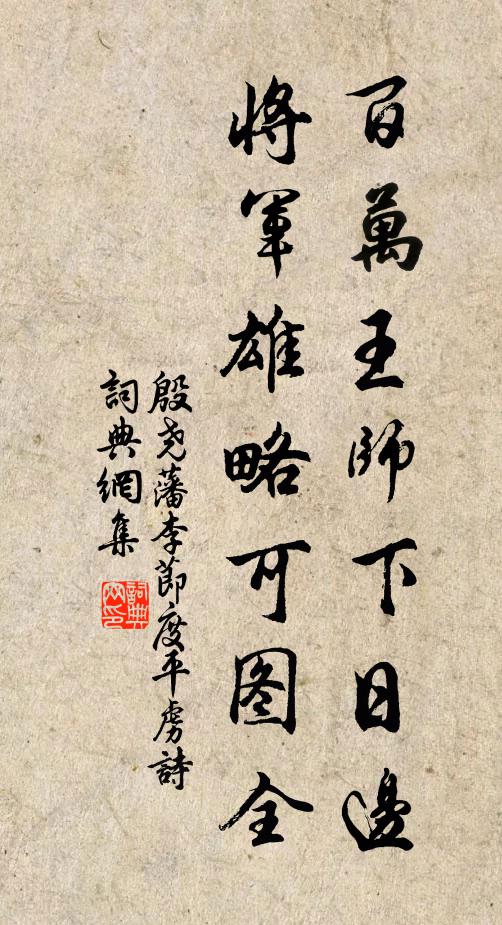 百萬王師下日邊
將軍雄略可图全
殷尧藩李節度平虜詩
詞典網集
詞典网印